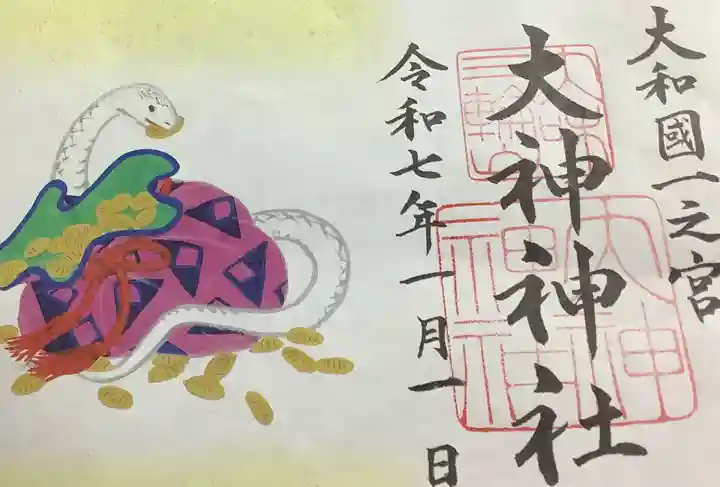 大和國一之宮
大神神社
令和七年一月一日
大神神社